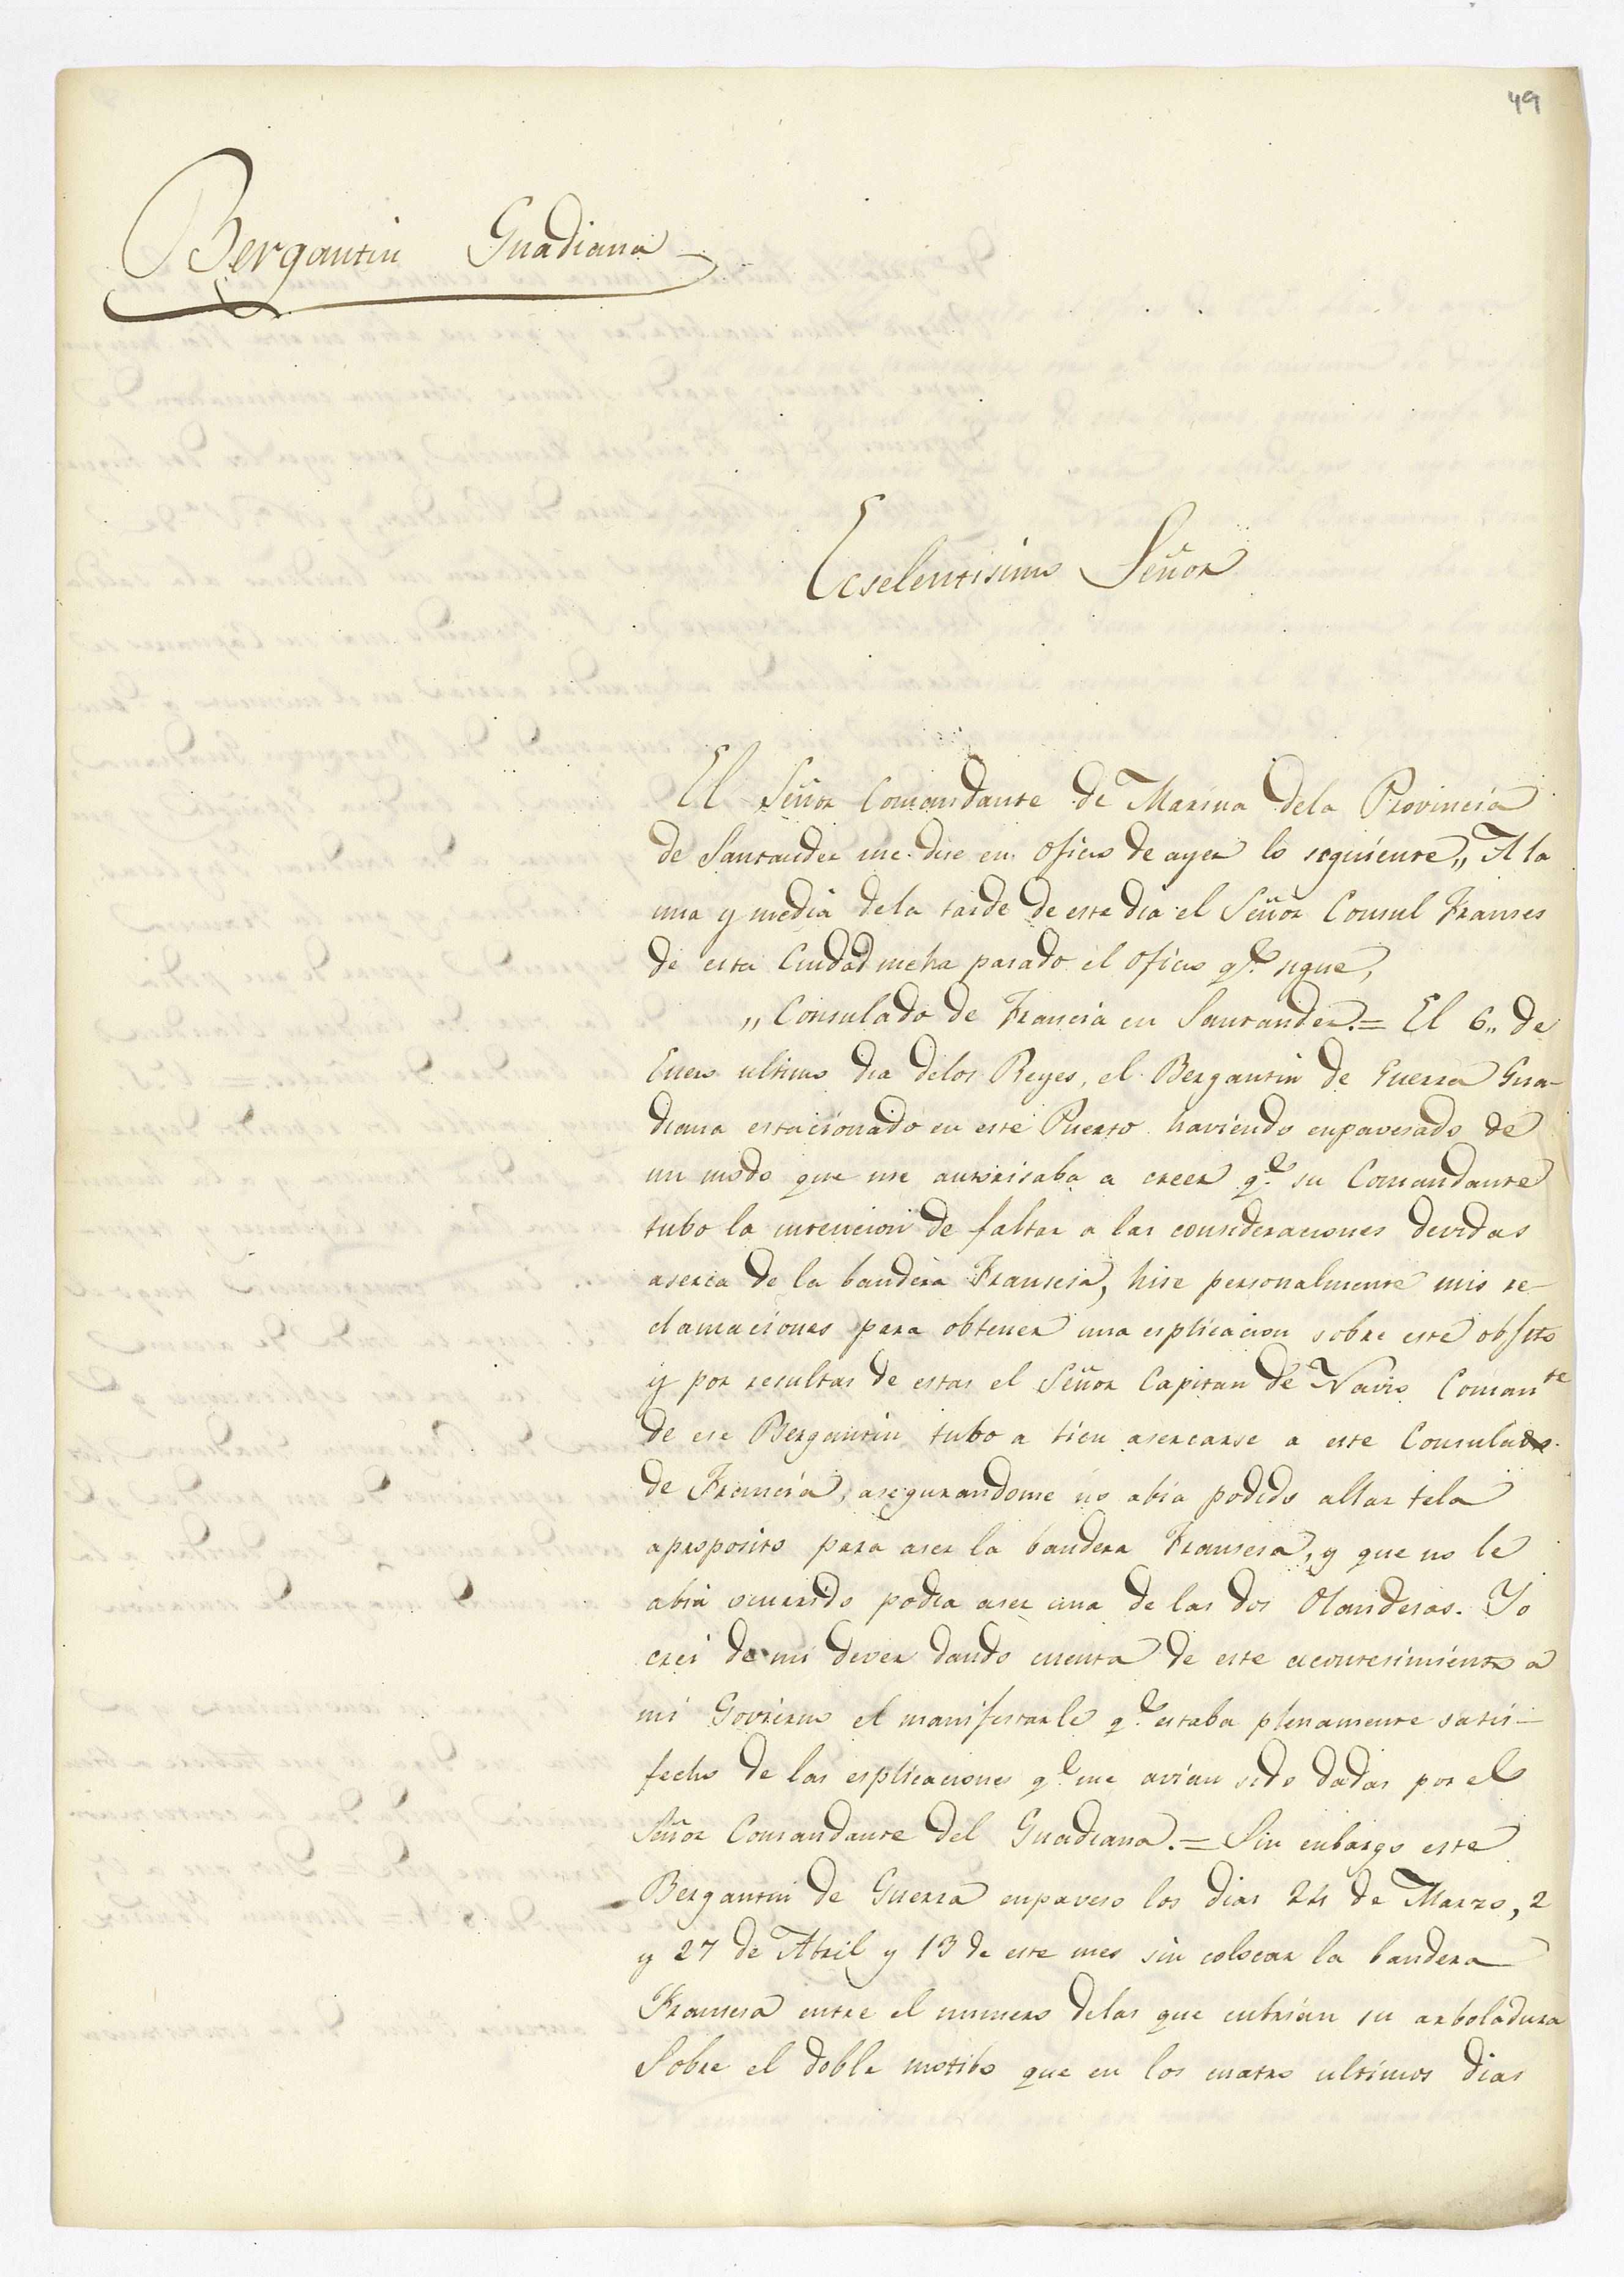 49
Bergantin Guadiana
Ecselentisimo Señor
El Señor Comandante de Marina dela Provincia
de Santander me dise en oficio de ayer lo siguiente,, A la
una y media dela tarde de este dia el Señor Consul Franses
de esta Ciudad meha pasado el oficio qe. sigue,
,, Consulado de Francia en Santander.= El 6,, de
Enero ultimo dia delos Reyes, el Bergantin de Guerra Gua-
diana estacionado en este Puerto haviendo enpavesado de
un modo que me autorisaba a creer qe. su Comandante
tubo la intencion de faltar a las consideraciones devidas
aserca de la bandera Fransesa, hise personalmente mis re-
clamaciones para obtener una esplicacion sobre este obgeto
y por resultas de estas el Señor Capitan de Navio Comante
de ese Bergantin tubo a bien asercarse a este Consulado
de Francia, asegurandome no abia podido allar tela
aproposito para aser la bandera Fransesa, y que no le
abia ocurrido podia aser una de las dos Olandesas. Yo
crei de mi dever dando cuenta de este acontesimiento a
mi Govierno el manifestarle qe. estaba plenamente satis-
fecho de las esplicaciones qe. me avian sido dadas por el
Señor Comandante del Guadiana.= Sin enbargo este
Bergantin de Guerra enpaveso los dias 24 de Marzo, 2
y 27 de Abril y 13 de este mes sin colocar la bandera
Fransesa entre el numero delas que cubrian su arboladura
Sobre el doble motibo que en los cuatro ultimos dias